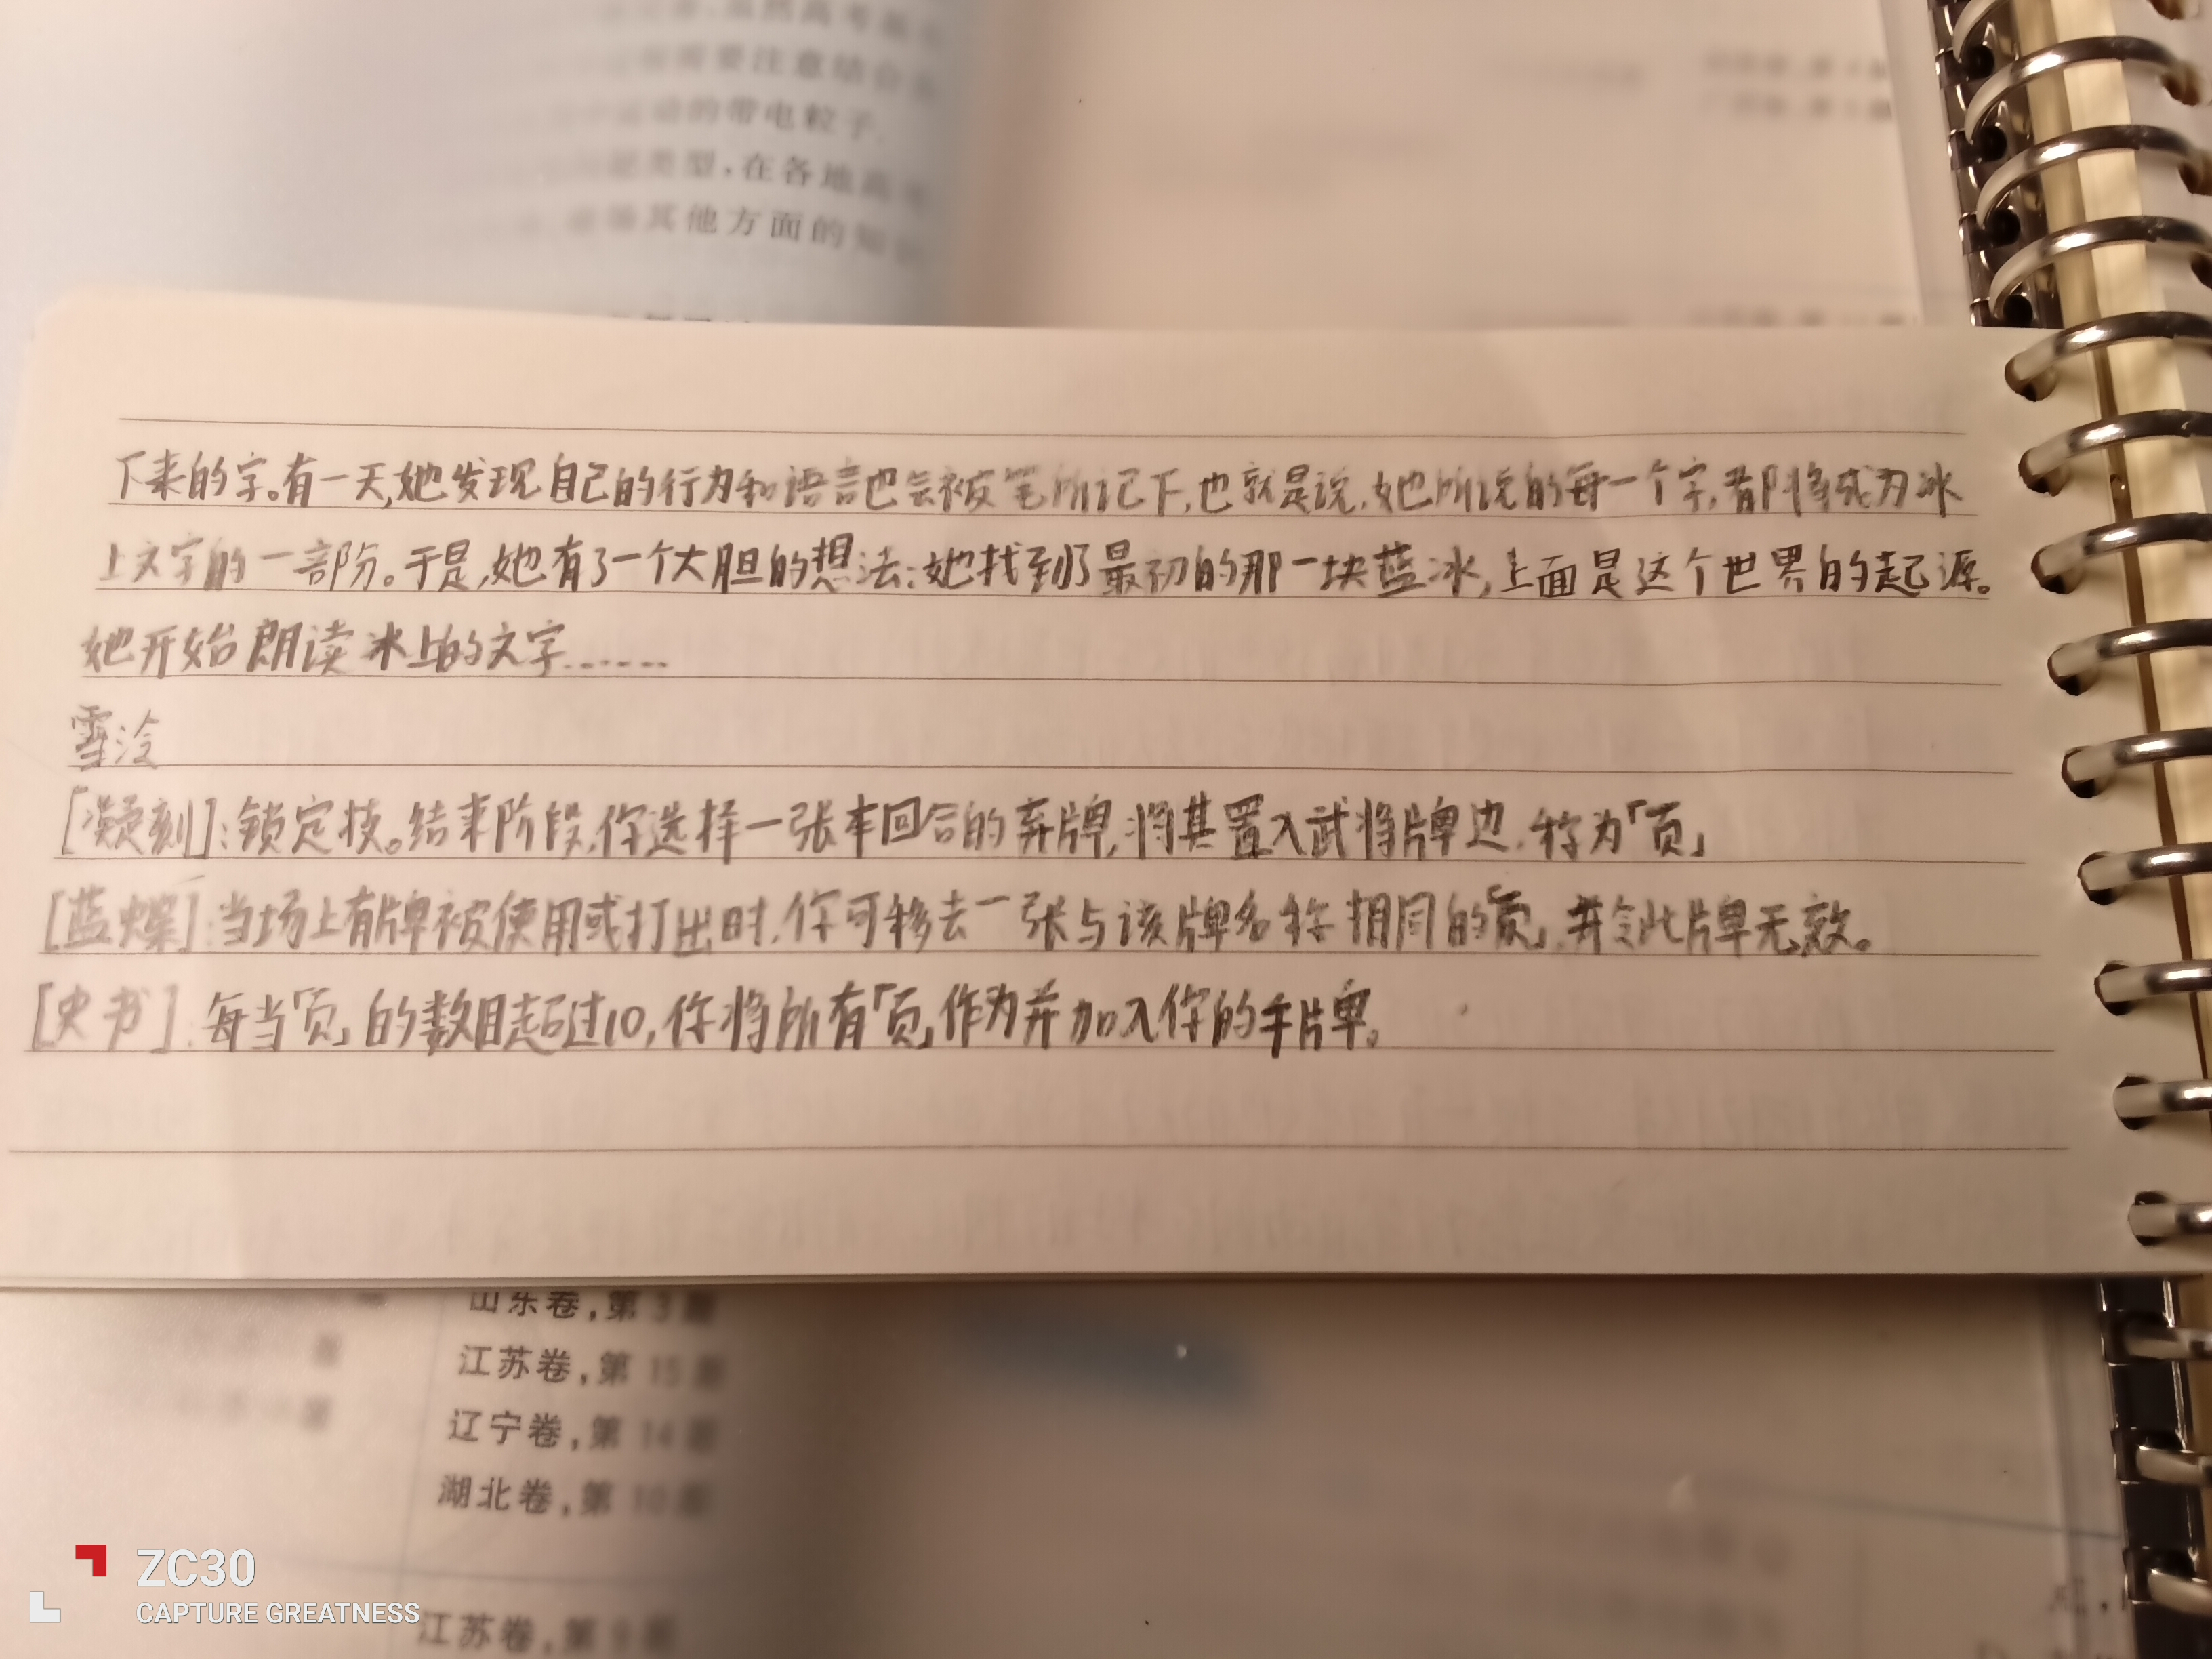 要注意结合
动的带电粒子.
类型,在各地高考
其他方面的知识
下来的字。有一天,她发现自己的行为和语言也会被笔所记下,也就是说,她所说的每一个字,都将成为冰
上文字的一部份。于是,她有了一个大胆的想法:她找到了最初的那一块蓝冰,上面是这个世界的起源。
她开始朗读冰上的文字......
雪泠
[凝刻]:锁定技。结束阶段,你选择一张本回合的弃牌,将其置入武将牌边,称为「页」
[蓝蝶]:当场上有牌被使用或打出时,你可移去一张与该牌名称相同的「页」,并令此牌无效。
[史书]:每当「页」的数目超过10,你将所有「页」作为并加入你的手牌。
山东卷,第3题
江苏卷,第15题
辽宁卷,第14题
湖北卷,第10题
江苏卷,第9题
ZC30
CAPTURE GREATNESS